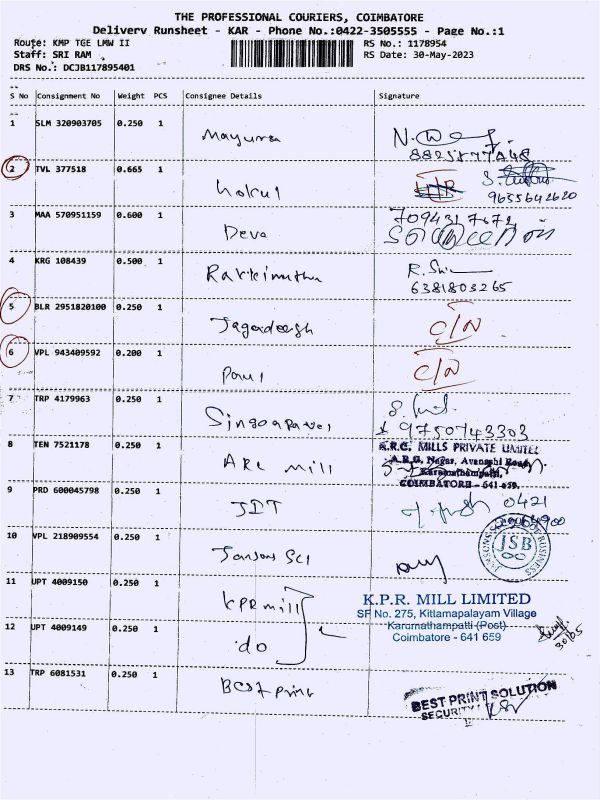 THE PROFESSIONAL COURIERS, COIMBATORE
Delivery Runsheet - KAR - Phone No.:0422-3505555 - Page No.:1
Route: KMP TGE LMW II RS No.: 1178954
Staff: SRI RAM RS Date: 30-May-2023
DRS No.: DCJB117895401
S No Consignment No Weight PCS Consignee Details Signature
1 SLM 320903705 0.250 1 Mayurra
2 TVL 377518 0.665 1 Gokul 9655642620
3 MAA 570951159 0.600 1 Deva 7094317672
4 KRG 108439 0.500 1 Rakkimuthu 6381803265
5 BLR 2951820100 0.250 1 Jagadeesh C/N
6 VPL 943409592 0.200 1 Paul C/N
7 TRP 4179963 0.250 1 9750743303
8 TEN 7521178 0.250 1 ARC mill A.R.C. MILLS PRIVATE LIMITED
A.R.G. Nagar, Avanashi Road,
Karumathampatti,
COIMBATORE - 641 659.
9 PRD 600045798 0.250 1 JDT 0421
10 VPL 218909554 0.250 1 Jansons SCI JSB
11 UPT 4009150 0.250 1 KPR mill K.P.R. MILL LIMITED
SF No. 275, Kittamapalayam Village
Karumathampatti (Post)
Coimbatore - 641 659
12 UPT 4009149 0.250 1 do 30/05
13 TRP 6081531 0.250 1 Best print BEST PRINT SOLUTION
SECURITY